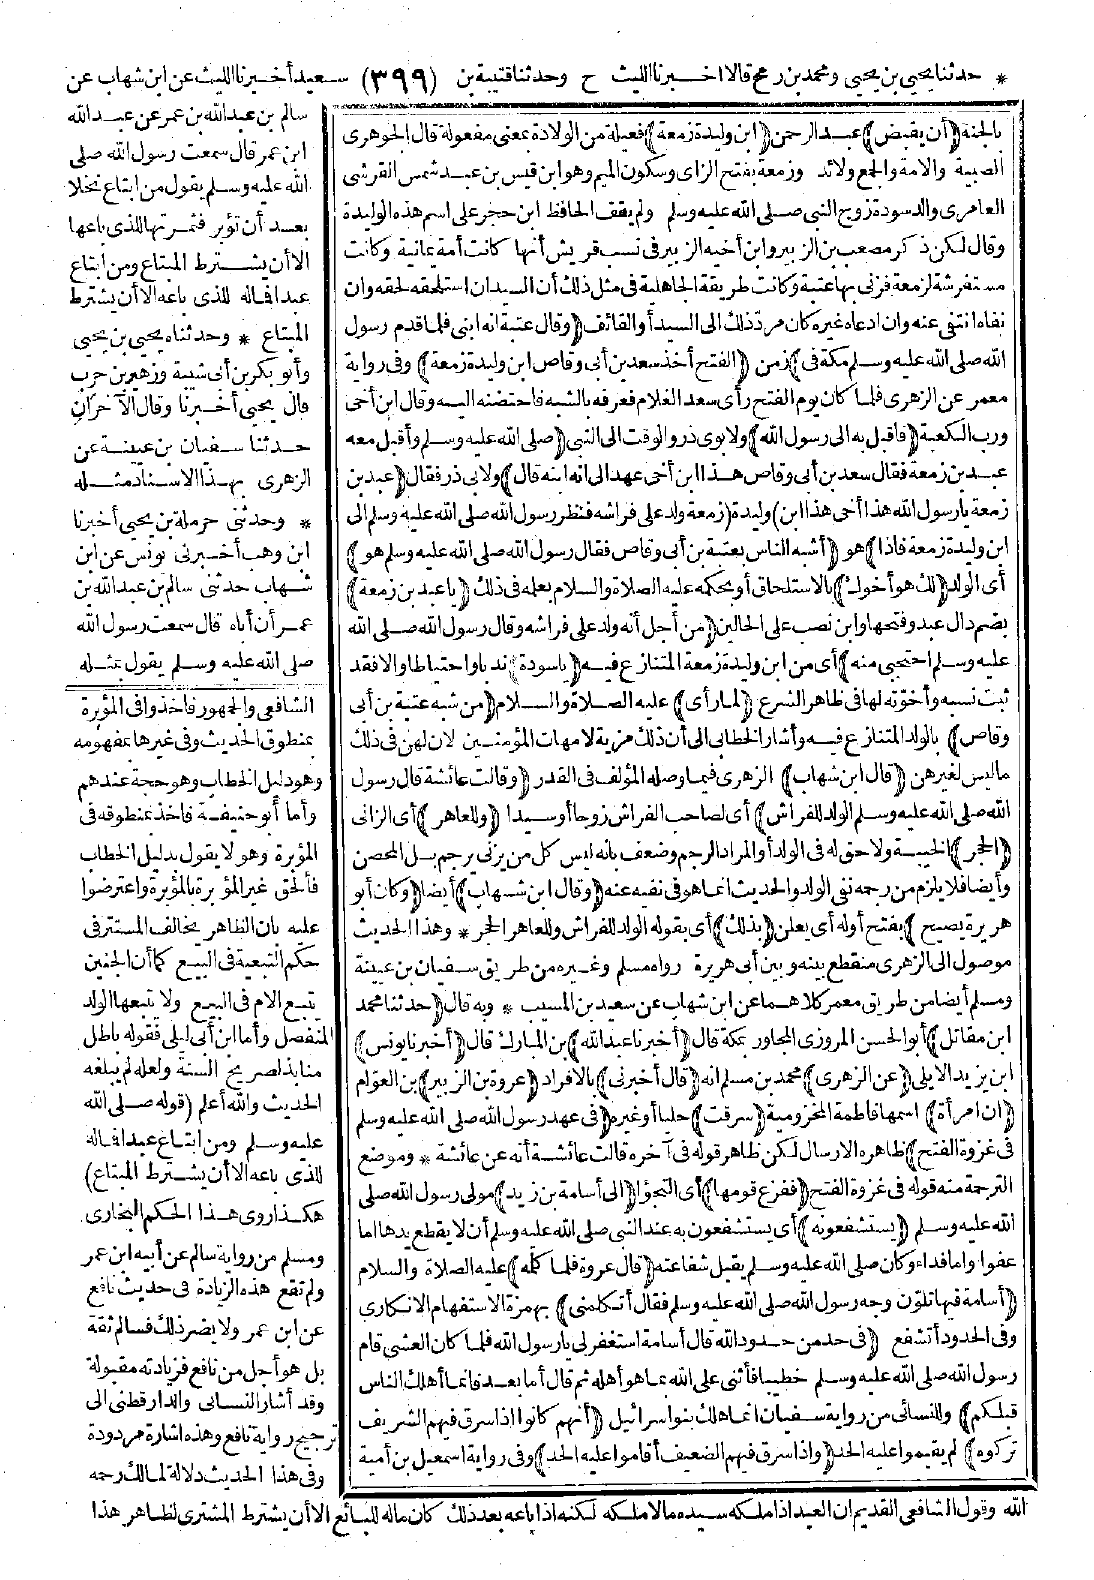 * حدثنا يحيى بن يحيى ومحمد بن رمح قالا اخبرنا الليث ح وحدثنا قتيبة بن (٣٩٩) سعيد أخبرنا الليث عن ابن شهاب عن
سالم بن عبد الله بن عمر عن عبد الله
ابن عمر قال سمعت رسول الله صلى
الله عليه وسلم يقول من ابتاع نخلا
بعد أن تؤبر فثمرتها للذى باعها
الا أن يشترط المبتاع ومن ابتاع
عبدا فماله للذى باعه الا أن يشترط
المبتاع * وحدثناه يحيى بن يحيى
وأبو بكر بن أبى شيبة وزهير بن حرب
قال يحيى أخبرنا وقال الآخران
حدثنا سفيان بن عيينة عن
الزهرى بهذا الاسناد مثله
* وحدثنى حرملة بن يحيى أخبرنا
ابن وهب أخبرنى يونس عن ابن
شهاب حدثنى سالم بن عبد الله بن
عمر أن أباه قال سمعت رسول الله
صلى الله عليه وسلم يقول بمثله
بالجنة (أن يقبض) عبد الرحمن (ابن وليدة زمعة) فعيلة من الولادة بمعنى مفعولة قال الجوهرى
الصبية والامة والجمع ولائد وزمعة بفتح الزاى وسكون الميم وهو ابن قيس بن عبد شمس القرشى
العامرى والد سودة زوج النبى صلى الله عليه وسلم ولم يقف الحافظ ابن حجر على اسم هذه الوليدة
وقال لكن ذكر مصعب بن الزبير وابن أخيه الزبير فى نسب قريش أنها كانت أمة يمانية وكانت
مستفرشة لزمعة فزنى بها عتبة وكانت طريقة الجاهلية فى مثل ذلك أن السيد ان استلحقه لحقه وان
نفاه انتفى عنه وان ادعاه غيره كان مرد ذلك الى السيد أو القائف (وقال عتبة انه ابنى فلما قدم رسول
الله صلى الله عليه وسلم مكة فى) زمن (الفتح أخذ سعد بن أبى وقاص ابن وليدة زمعة) وفى رواية
معمر عن الزهرى فلما كان يوم الفتح رأى سعد الغلام فعرفه بالشبه فاحتضنه اليه وقال ابن أخى
ورب الكعبة (فأقبل به الى رسول الله) ولابوى ذر والوقت الى النبى (صلى الله عليه وسلم وأقبل معه
عبد بن زمعة فقال سعد بن أبى وقاص هذا ابن أخى عهد الى انه ابنه قال) ولابى ذر فقال (عبد بن
زمعة يا رسول الله هذا أخى هذا ابن) وليدة (زمعة ولد على فراشه فنظر رسول الله صلى الله عليه وسلم الى
ابن وليدة زمعة فاذا) هو (أشبه الناس بعتبة بن أبى وقاص فقال رسول الله صلى الله عليه وسلم هو)
أى الولد (لك هو أخوك) بالاستلحاق أو بحكمه عليه الصلاة والسلام بعلمه فى ذلك (يا عبد بن زمعة)
بضم دال عبد وفتحها وابن نصب على الحالين (من أجل أنه ولد على فراشه وقال رسول الله صلى الله
عليه وسلم احتجبى منه) أى من ابن وليدة زمعة المتنازع فيه (يا سودة) ندبا واحتياطا والا فقد
ثبت نسبه وأخوّته لها فى ظاهر الشرع (لما رأى) عليه الصلاة والسلام (من شبه عتبة بن أبى
وقاص) بالولد المتنازع فيه وأشار الخطابى الى أن ذلك مزية لامهات المؤمنين لان لهن فى ذلك
ما ليس لغيرهن (قال ابن شهاب) الزهرى فيما وصله المؤلف فى القدر (وقالت عائشة قال رسول
الله صلى الله عليه وسلم الولد للفراش) أى لصاحب الفراش زوجا أو سيدا (وللعاهر) أى الزانى
(الحجر) الخيبة ولا حق له فى الولد أو المراد الرجم وضعف بانه ليس كل من يزنى يرجم بل المحصن
وأيضا فلا يلزم من رجمه نفى الولد والحديث انما هو فى نفيه عنه (وقال ابن شهاب) أيضا (وكان أبو
هريرة يصيح) بفتح أوله أى يعلن (بذلك) أى بقوله الولد للفراش وللعاهر الحجر * وهذا الحديث
موصول الى الزهرى منقطع بينه وبين أبى هريرة رواه مسلم وغيره من طريق سفيان بن عيينة
ومسلم أيضا من طريق معمر كلاهما عن ابن شهاب عن سعيد بن المسيب * وبه قال (حدثنا محمد
ابن مقاتل) أبو الحسن المروزى المجاور بمكة قال (أخبرنا عبد الله) بن المبارك قال (أخبرنا يونس)
ابن يزيد الايلى (عن الزهرى) محمد بن مسلم انه (قال أخبرنى) بالافراد (عروة بن الزبير) بن العوّام
(ان امرأة) اسمها فاطمة المخزومية (سرقت) حليا أو غيره (فى عهد رسول الله صلى الله عليه وسلم
فى غزوة الفتح) ظاهره الارسال لكن ظاهر قوله فى آخره قالت عائشة أنه عن عائشة * وموضع
الترجمة منه قوله فى غزوة الفتح (ففزع قومها) أى التجؤا (الى أسامة بن زيد) مولى رسول الله صلى
الله عليه وسلم (يستشفعونه) أى يستشفعون به عند النبى صلى الله عليه وسلم أن لا يقطع يدها اما
عفوا واما فداء وكان صلى الله عليه وسلم يقبل شفاعته (قال عروة فلما كلمه) عليه الصلاة والسلام
(أسامة فيها تلوّن وجه رسول الله صلى الله عليه وسلم فقال أتكلمنى) بهمزة الاستفهام الانكارى
وفى الحدود أتشفع (فى حد من حدود الله قال أسامة استغفر لى يا رسول الله فلما كان العشى قام
رسول الله صلى الله عليه وسلم خطيبا فأثنى على الله بما هو أهله ثم قال أما بعد فانما أهلك الناس
قبلكم) وللنسائى من رواية سفيان انما هلك بنو اسرائيل (أنهم كانوا اذا سرق فيهم الشريف
تركوه) لم يقيموا عليه الحد (واذا سرق فيهم الضعيف أقاموا عليه الحد) وفى رواية اسمعيل بن أمية
الشافعى والجمهور فأخذوا فى المؤبرة
بمنطوق الحديث وفى غيرها بمفهومه
وهو دليل الخطاب وهو حجة عندهم
وأما أبو حنيفة فأخذ بمنطوقه فى
المؤبرة وهو لا يقول بدليل الخطاب
فألحق غير المؤبرة بالمؤبرة واعترضوا
عليه بان الظاهر يخالف المستتر فى
حكم التبعية فى البيع كما أن الجنين
يتبع الام فى البيع ولا يتبعها الولد
المنفصل وأما ابن أبى ليلى فقوله باطل
منابذ لصريح السنة ولعله لم يبلغه
الحديث والله أعلم (قوله صلى الله
عليه وسلم ومن ابتاع عبدا فماله
للذى باعه الا أن يشترط المبتاع)
هكذا روى هذا الحكم البخارى
ومسلم من رواية سالم عن أبيه ابن عمر
ولم تقع هذه الزيادة فى حديث نافع
عن ابن عمر ولا يضر ذلك فسالم ثقة
بل هو أجل من نافع فزيادته مقبولة
وقد أشار النسائى والدارقطنى الى
ترجيح رواية نافع وهذه اشارة مردودة
وفى هذا الحديث دلالة لمالك رحمه
الله وقول الشافعى القديم ان العبد اذا ملكه سيده مالا ملكه لكنه اذا باعه بعد ذلك كان ماله للبائع الا أن يشترط المشترى لظاهر هذا